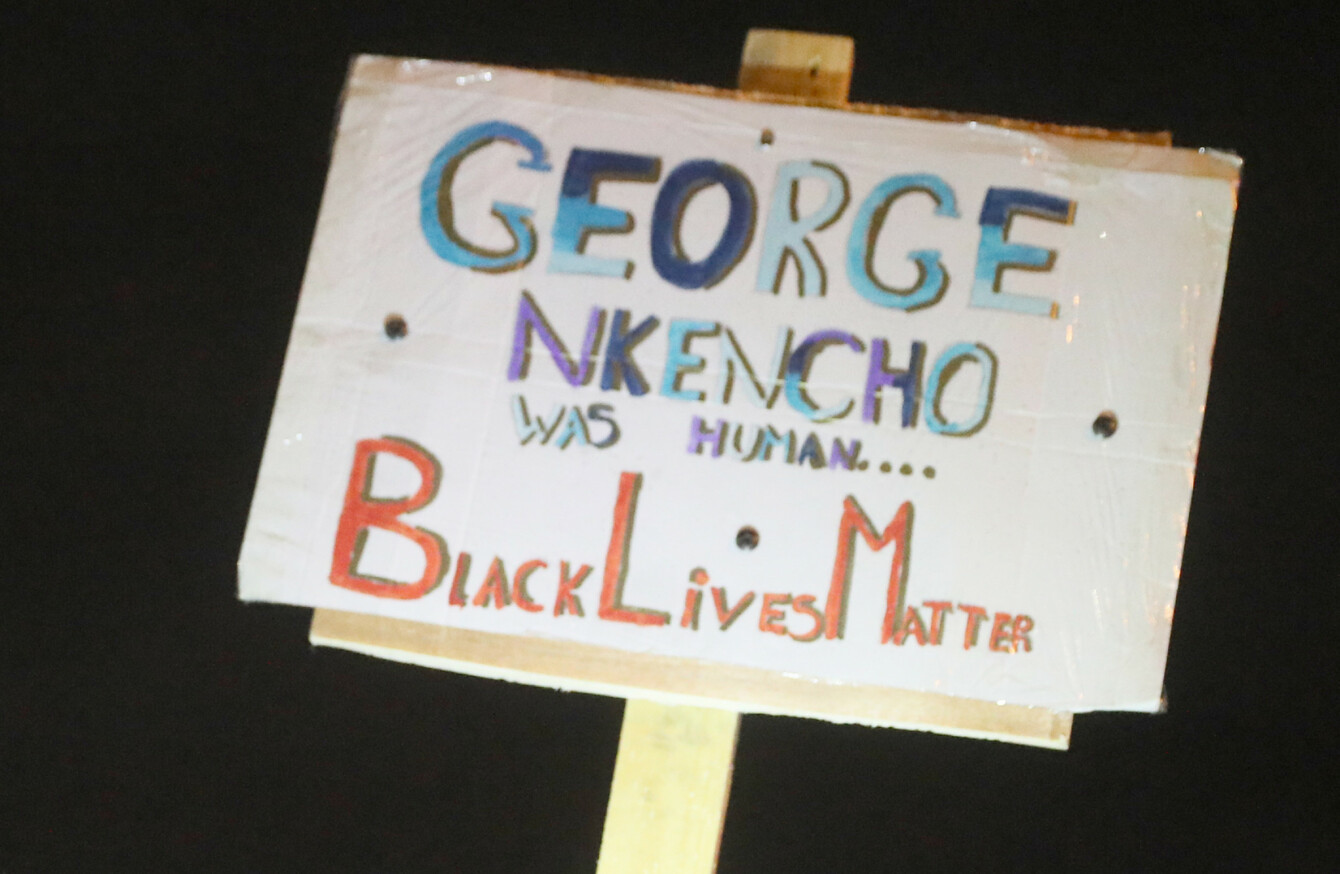 GEORGE
NKENCHO
WAS HUMAN....
BLACK LiVES MATTER